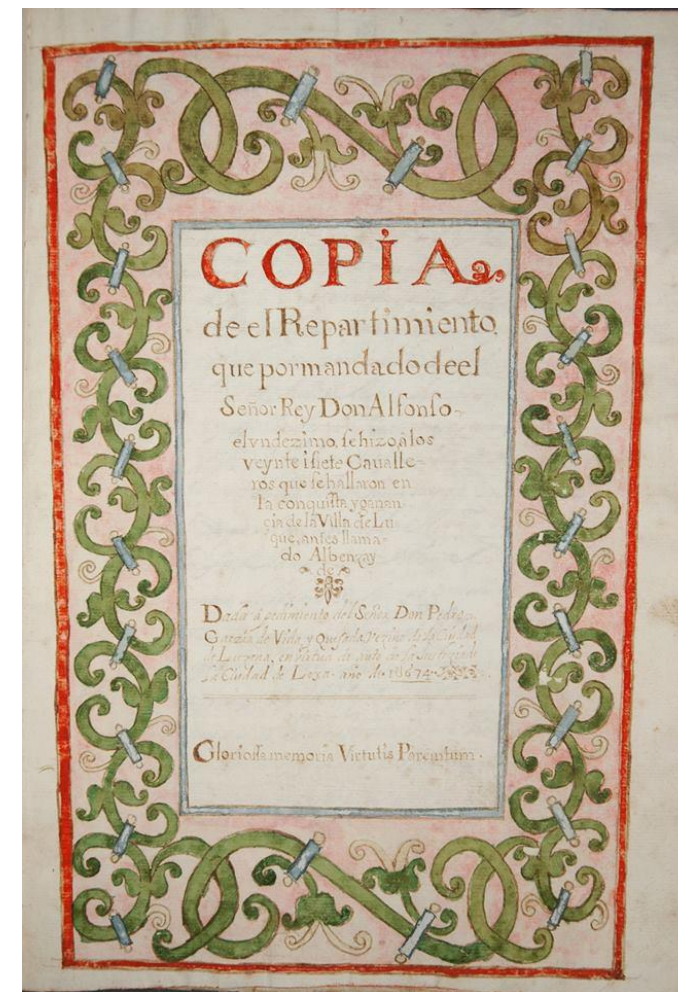 COPIA
de el Repartimiento,
que por mandado de el
Señor Rey Don Alfonso
el vndezimo, se hizo, à los
veynte i siete Cavalle-
ros que se hallaron en
la conquista, y ganan-
cia de la Villa de Lu
que, antes llama-
do Albenzay
de
Dada à pedimiento del Señor Don Pedro
de Vida, y Quesada Vezino de la Ciudad
de Luzena, en virtud de auto de la Justicia de
la Ciudad de Loxa. año de
Gloriossa memoria Virtutis Parentum.